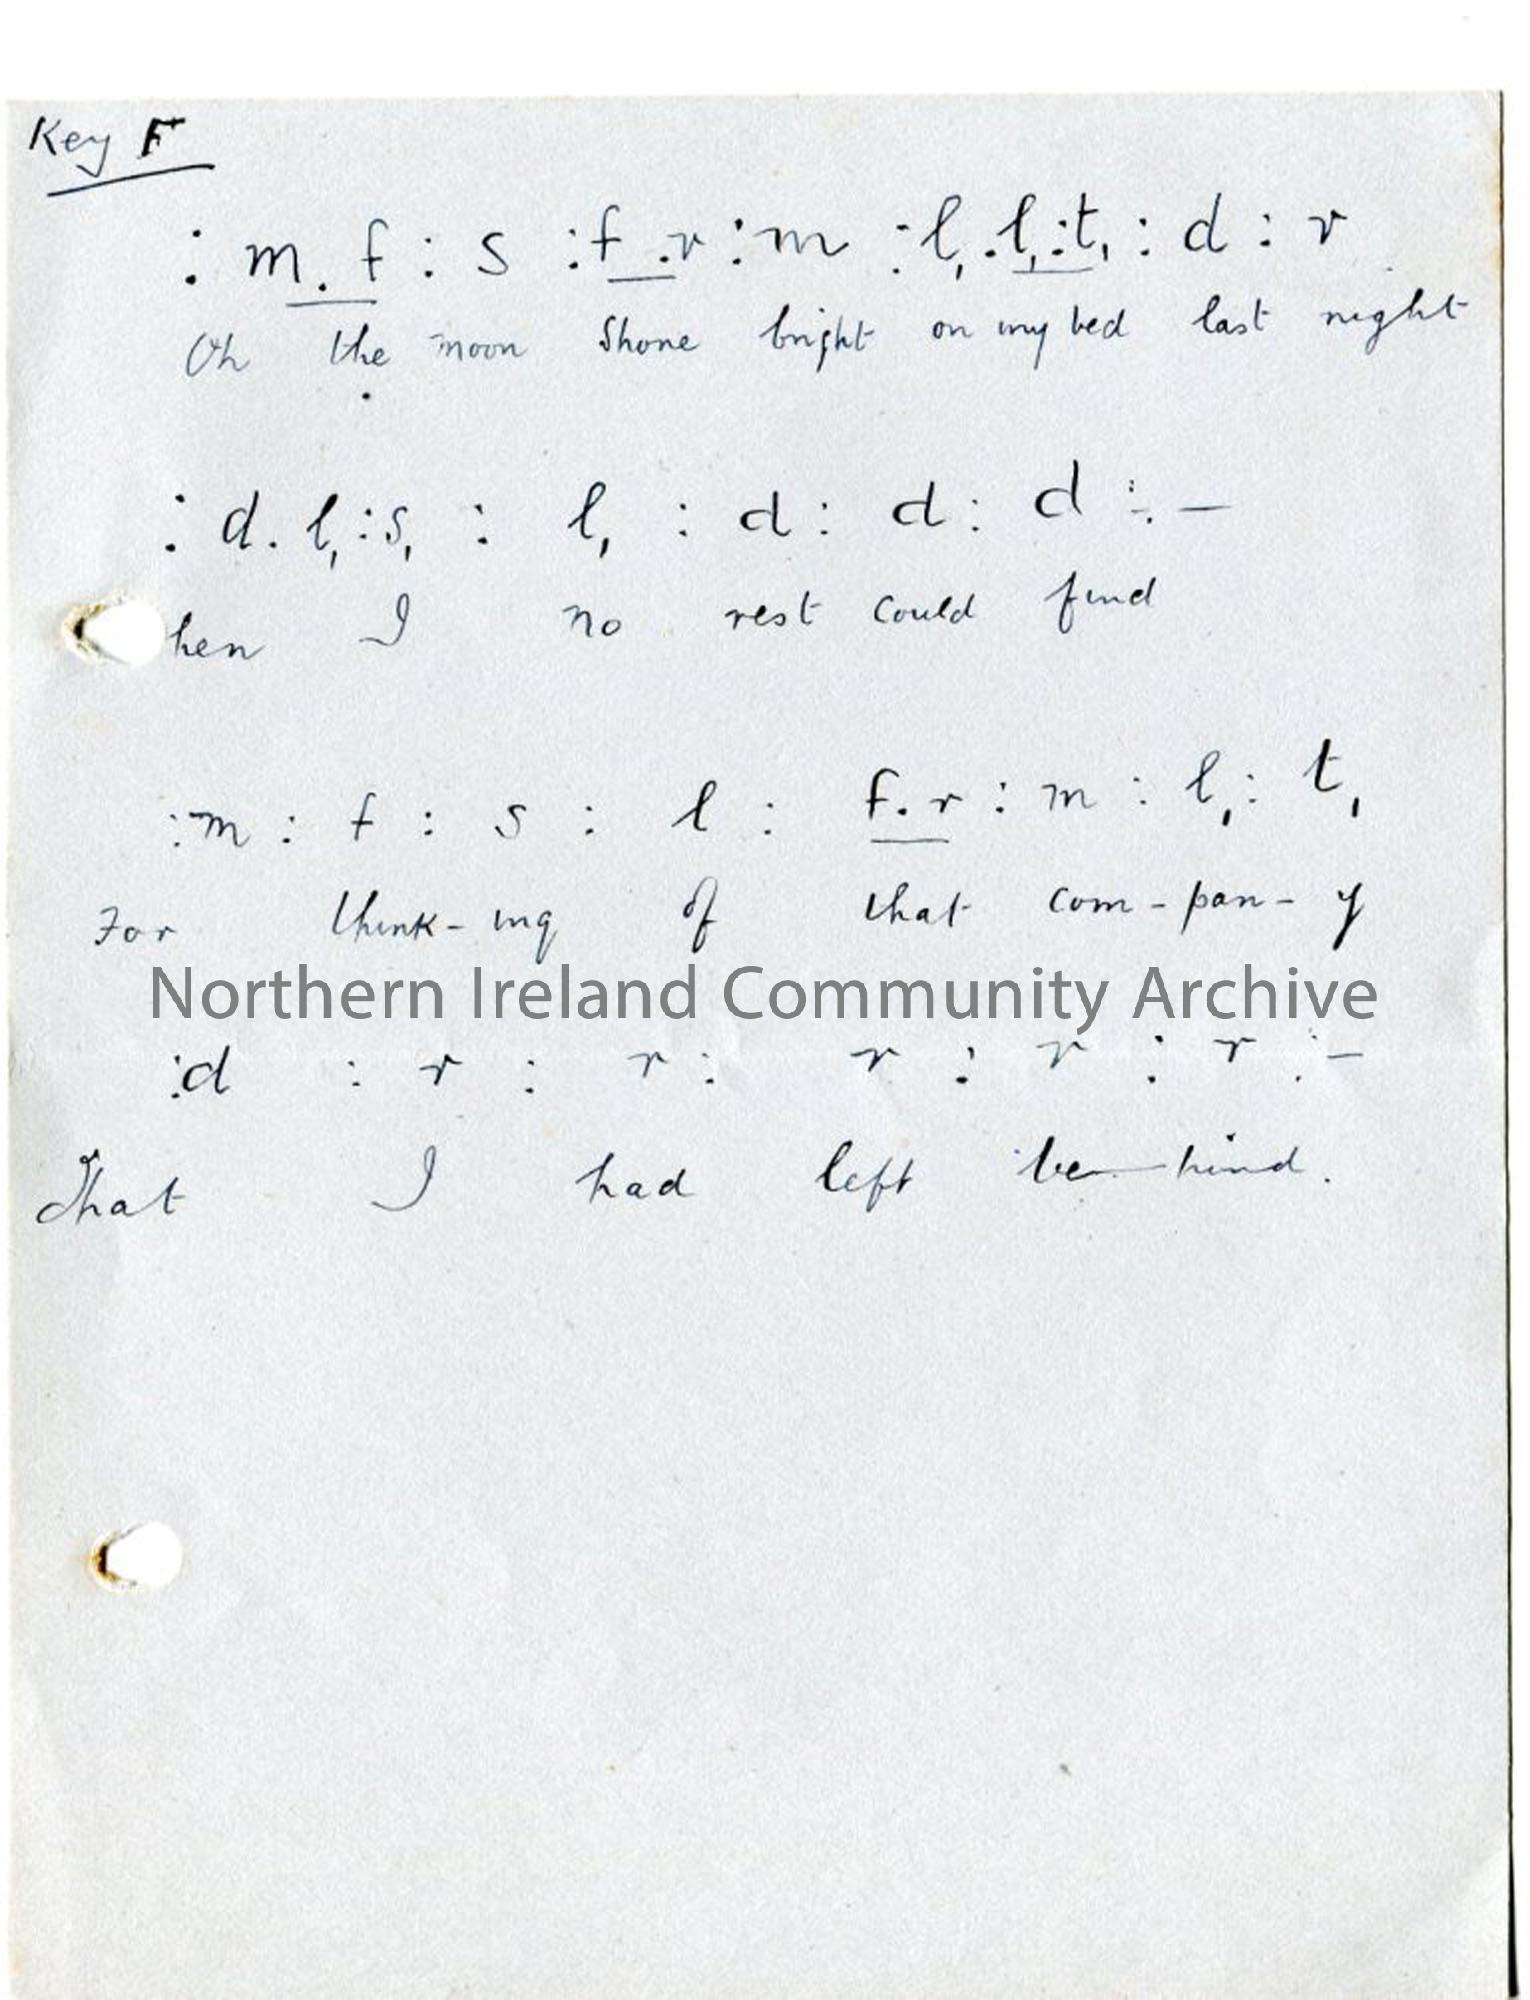 Key F
: m. f : s : f .r : m : l, . l, : t, : d : r
Oh the moon Shone bright on my bed last night
: d. l, : s, : l, : d : d : d : . —
hen I no rest could find
: m : f : s : l : f. r : m : l, : t,
For think- ing of that com - pan - y
Northern Ireland Community Archive
: d : r : r : r : r : r : —
That I had left be—hind.